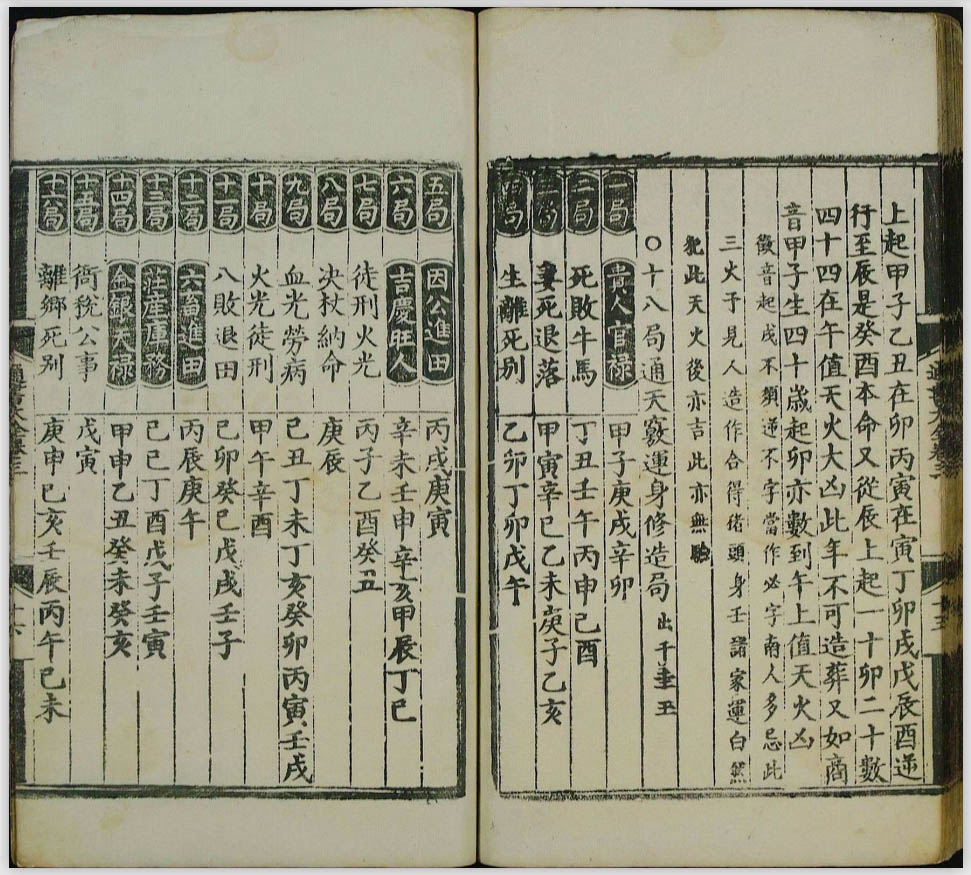 上起甲子乙丑在卯丙寅在寅丁卯戌戊辰酉逆
行至辰是癸酉本命又從辰上起一十卯二十數
四十四在午值天火大凶此年不可造葬又如商
音甲子生四十歲起卯亦數到午上值天火凶
徵音起戌不須逆不字當作必字南人多忌此
三火予見人造作合得猪頭身壬諸家運白無
犯此天火後亦吉此亦無驗
〇十八局通天竅運身修造局 出千
一局 貴人官祿 甲子庚戌辛卯
二局 死敗牛馬 丁丑壬午丙申己酉
三局 妻死退落 甲寅辛巳乙未庚子乙亥
四局 生離死别 乙卯丁卯戊午
五局 因公進田 丙戌庚寅
六局 吉慶旺人 辛未壬申辛亥甲辰丁巳
七局 徒刑火光 丙子乙酉癸丑
八局 决杖納命 庚辰
九局 血光勞病 己丑丁未丁亥癸卯丙寅壬戌
十局 火光徒刑 甲午辛酉
十一局 八敗退田 己卯癸巳戊戌壬子
十二局 六畜進田 丙辰庚午
十三局 莊産庫務 己巳丁酉戊子壬寅
十四局 金銀大祿 甲申乙丑癸未癸亥
十五局 衙稅公事 戊寅
十六局 離鄉死别 庚申己亥壬辰丙午己未